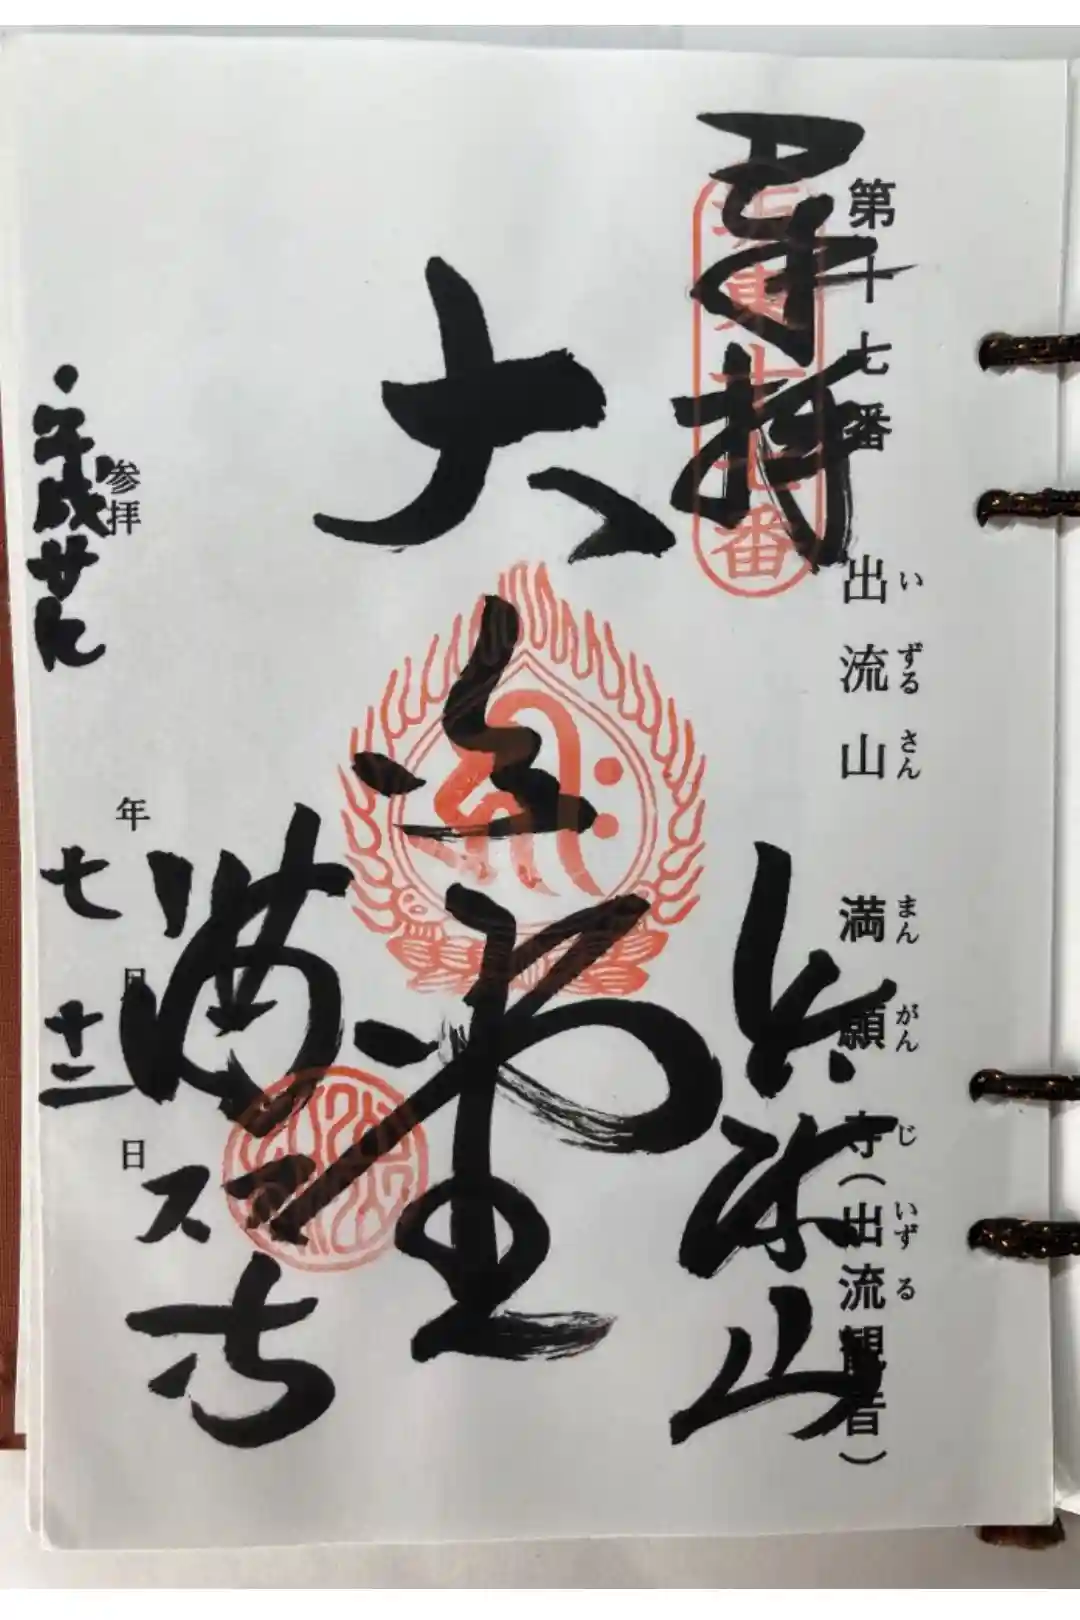 第十七番 出流山 満願寺（出流観音）
いずるさん まんがんじ いずる
奉拝
坂東十七番
出流山
大悲殿
満願寺
参拝 年 月 日
平成廿八
七
十二